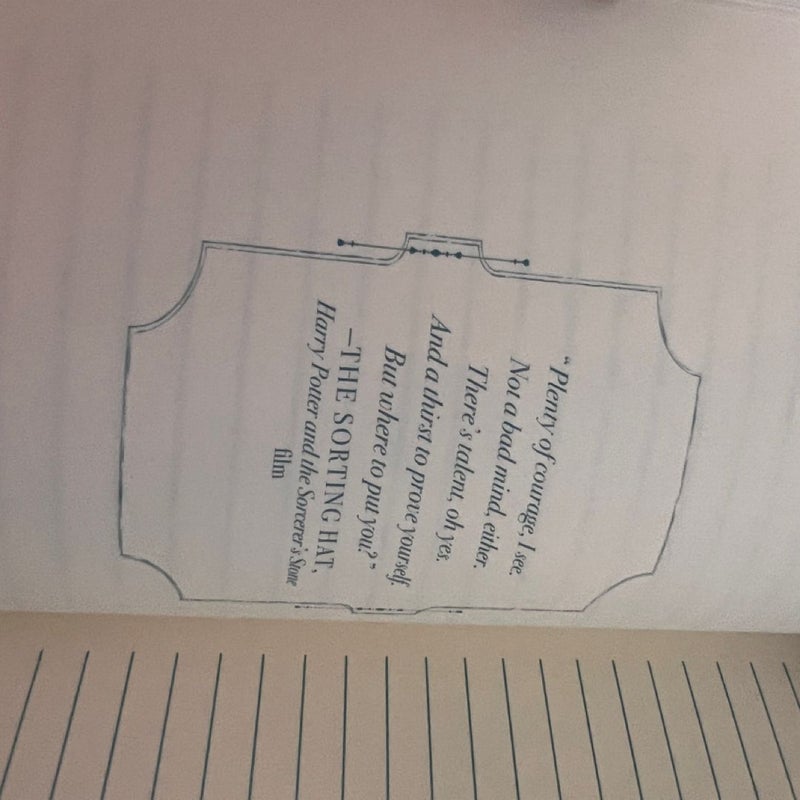 “Plenty of courage, I see.
Not a bad mind, either.
There’s talent, oh yes.
And a thirst to prove yourself.
But where to put you?”
—THE SORTING HAT,
Harry Potter and the Sorcerer’s Stone
film